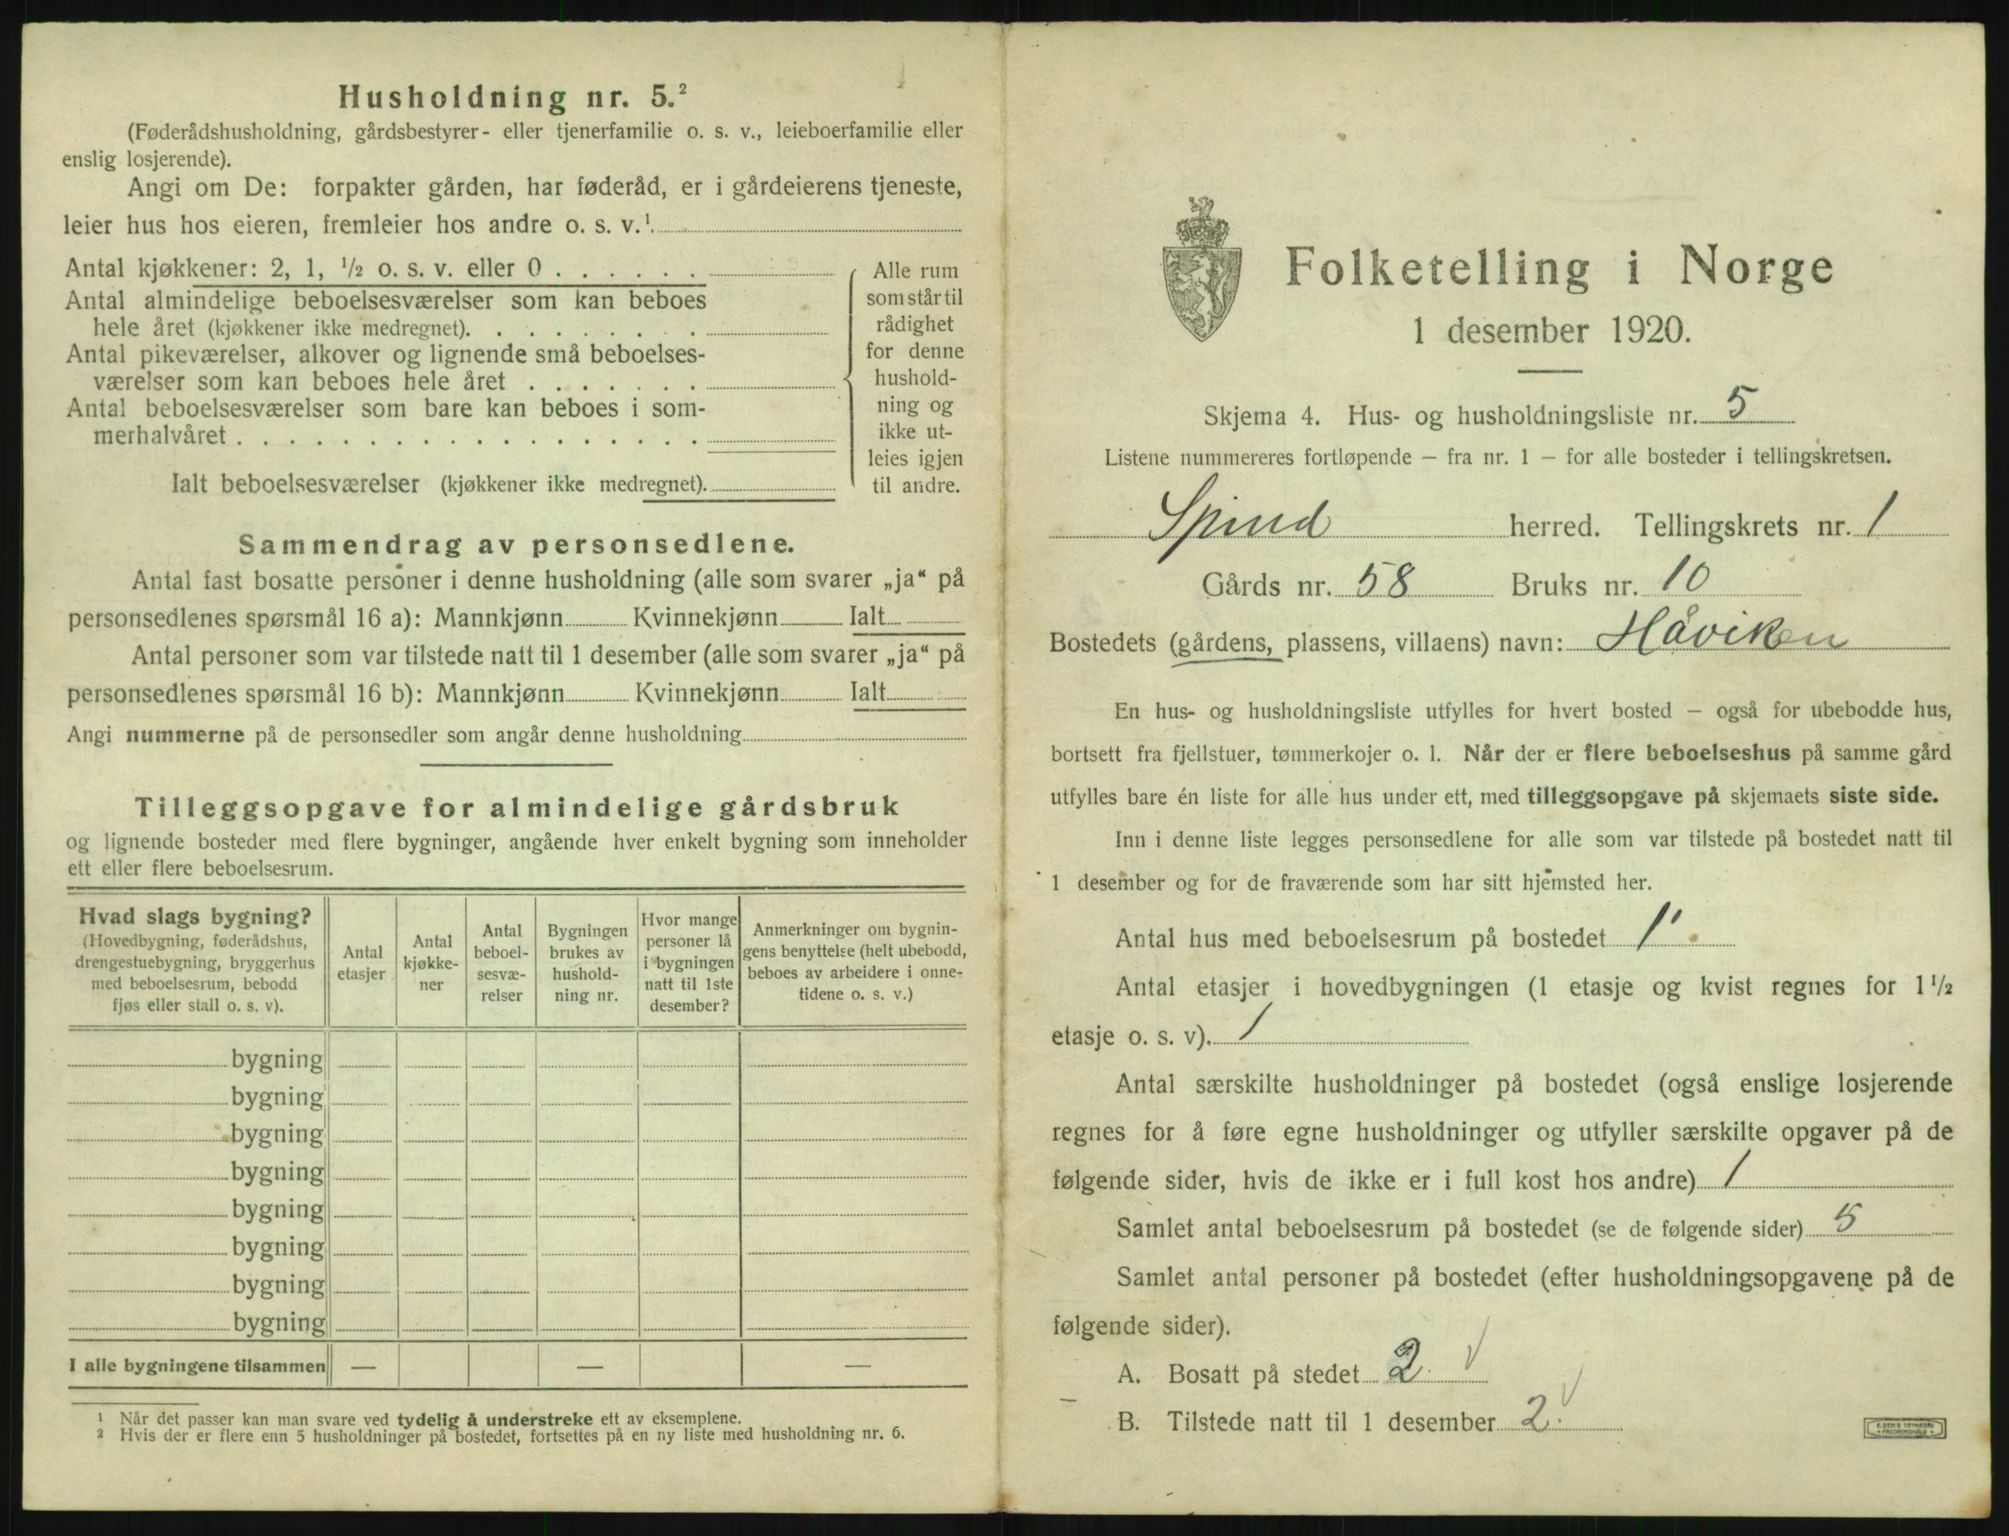 Husholdning nr. 5.²
(Føderådshusholdning, gårdsbestyrer- eller tjenerfamilie o. s. v., leieboerfamilie eller
enslig losjerende).
Angi om De: forpakter gården, har føderåd, er i gårdeierens tjeneste,
leier hus hos eieren, fremleier hos andre o. s. v.¹
Antal kjøkkener: 2, 1, ½ o. s. v. eller 0 . . . . . .
Antal almindelige beboelsesværelser som kan beboes
hele året (kjøkkener ikke medregnet). . . . . . . .
Antal pikeværelser, alkover og lignende små beboelses-
værelser som kan beboes hele året . . . . . . .
Antal beboelsesværelser som bare kan beboes i som-
merhalvåret . . . . . . . . . . . . . . . . . .
Ialt beboelsesværelser (kjøkkener ikke medregnet).
Alle rum
som står til
rådighet
for denne
hushold-
ning og
ikke ut-
leies igjen
til andre.
Sammendrag av personsedlene.
Antal fast bosatte personer i denne husholdning (alle som svarer „ja“ på
personsedlenes spørsmål 16 a): Mannkjønn Kvinnekjønn Ialt
Antal personer som var tilstede natt til 1 desember (alle som svarer „ja“ på
personsedlenes spørsmål 16 b): Mannkjønn Kvinnekjønn Ialt
Angi nummerne på de personsedler som angår denne husholdning
Tilleggsopgave for almindelige gårdsbruk
og lignende bosteder med flere bygninger, angående hver enkelt bygning som inneholder
ett eller flere beboelsesrum.
Hvad slags bygning?
(Hovedbygning, føderådshus,
drengestuebygning, bryggerhus
med beboelsesrum, bebodd
fjøs eller stall o. s. v).
Antal
etasjer
Antal
kjøkke-
ner
Antal
beboel-
sesvæ-
relser
Bygningen
brukes av
hushold-
ning nr.
Hvor mange
personer lå
i bygningen
natt til 1ste
desember?
Anmerkninger om bygnin-
gens benyttelse (helt ubebodd,
beboes av arbeidere i onne-
tidene o. s. v.)
bygning
bygning
bygning
bygning
bygning
bygning
bygning
bygning
I alle bygningene tilsammen — — —
¹ Når det passer kan man svare ved tydelig å understreke ett av eksemplene.
² Hvis der er flere enn 5 husholdninger på bostedet, fortsettes på en ny liste med husholdning nr. 6.
Folketelling i Norge
1 desember 1920.
Skjema 4. Hus- og husholdningsliste nr. 5
Listene nummereres fortløpende – fra nr. 1 – for alle bosteder i tellingskretsen.
Spind herred. Tellingskrets nr. 1
Gårds nr. 58 Bruks nr. 10
Bostedets (gårdens, plassens, villaens) navn: Håviken
En hus- og husholdningsliste utfylles for hvert bosted – også for ubebodde hus,
bortsett fra fjellstuer, tømmerkojer o. l. Når der er flere beboelseshus på samme gård
utfylles bare én liste for alle hus under ett, med tilleggsopgave på skjemaets siste side.
Inn i denne liste legges personsedlene for alle som var tilstede på bostedet natt til
1 desember og for de fraværende som har sitt hjemsted her.
Antal hus med beboelsesrum på bostedet 1
Antal etasjer i hovedbygningen (1 etasje og kvist regnes for 1½
etasje o. s. v). 1
Antal særskilte husholdninger på bostedet (også enslige losjerende
regnes for å føre egne husholdninger og utfyller særskilte opgaver på de
følgende sider, hvis de ikke er i full kost hos andre) 1
Samlet antal beboelsesrum på bostedet (se de følgende sider) 5
Samlet antal personer på bostedet (efter husholdningsopgavene på de
følgende sider).
A. Bosatt på stedet 2
B. Tilstede natt til 1 desember 2